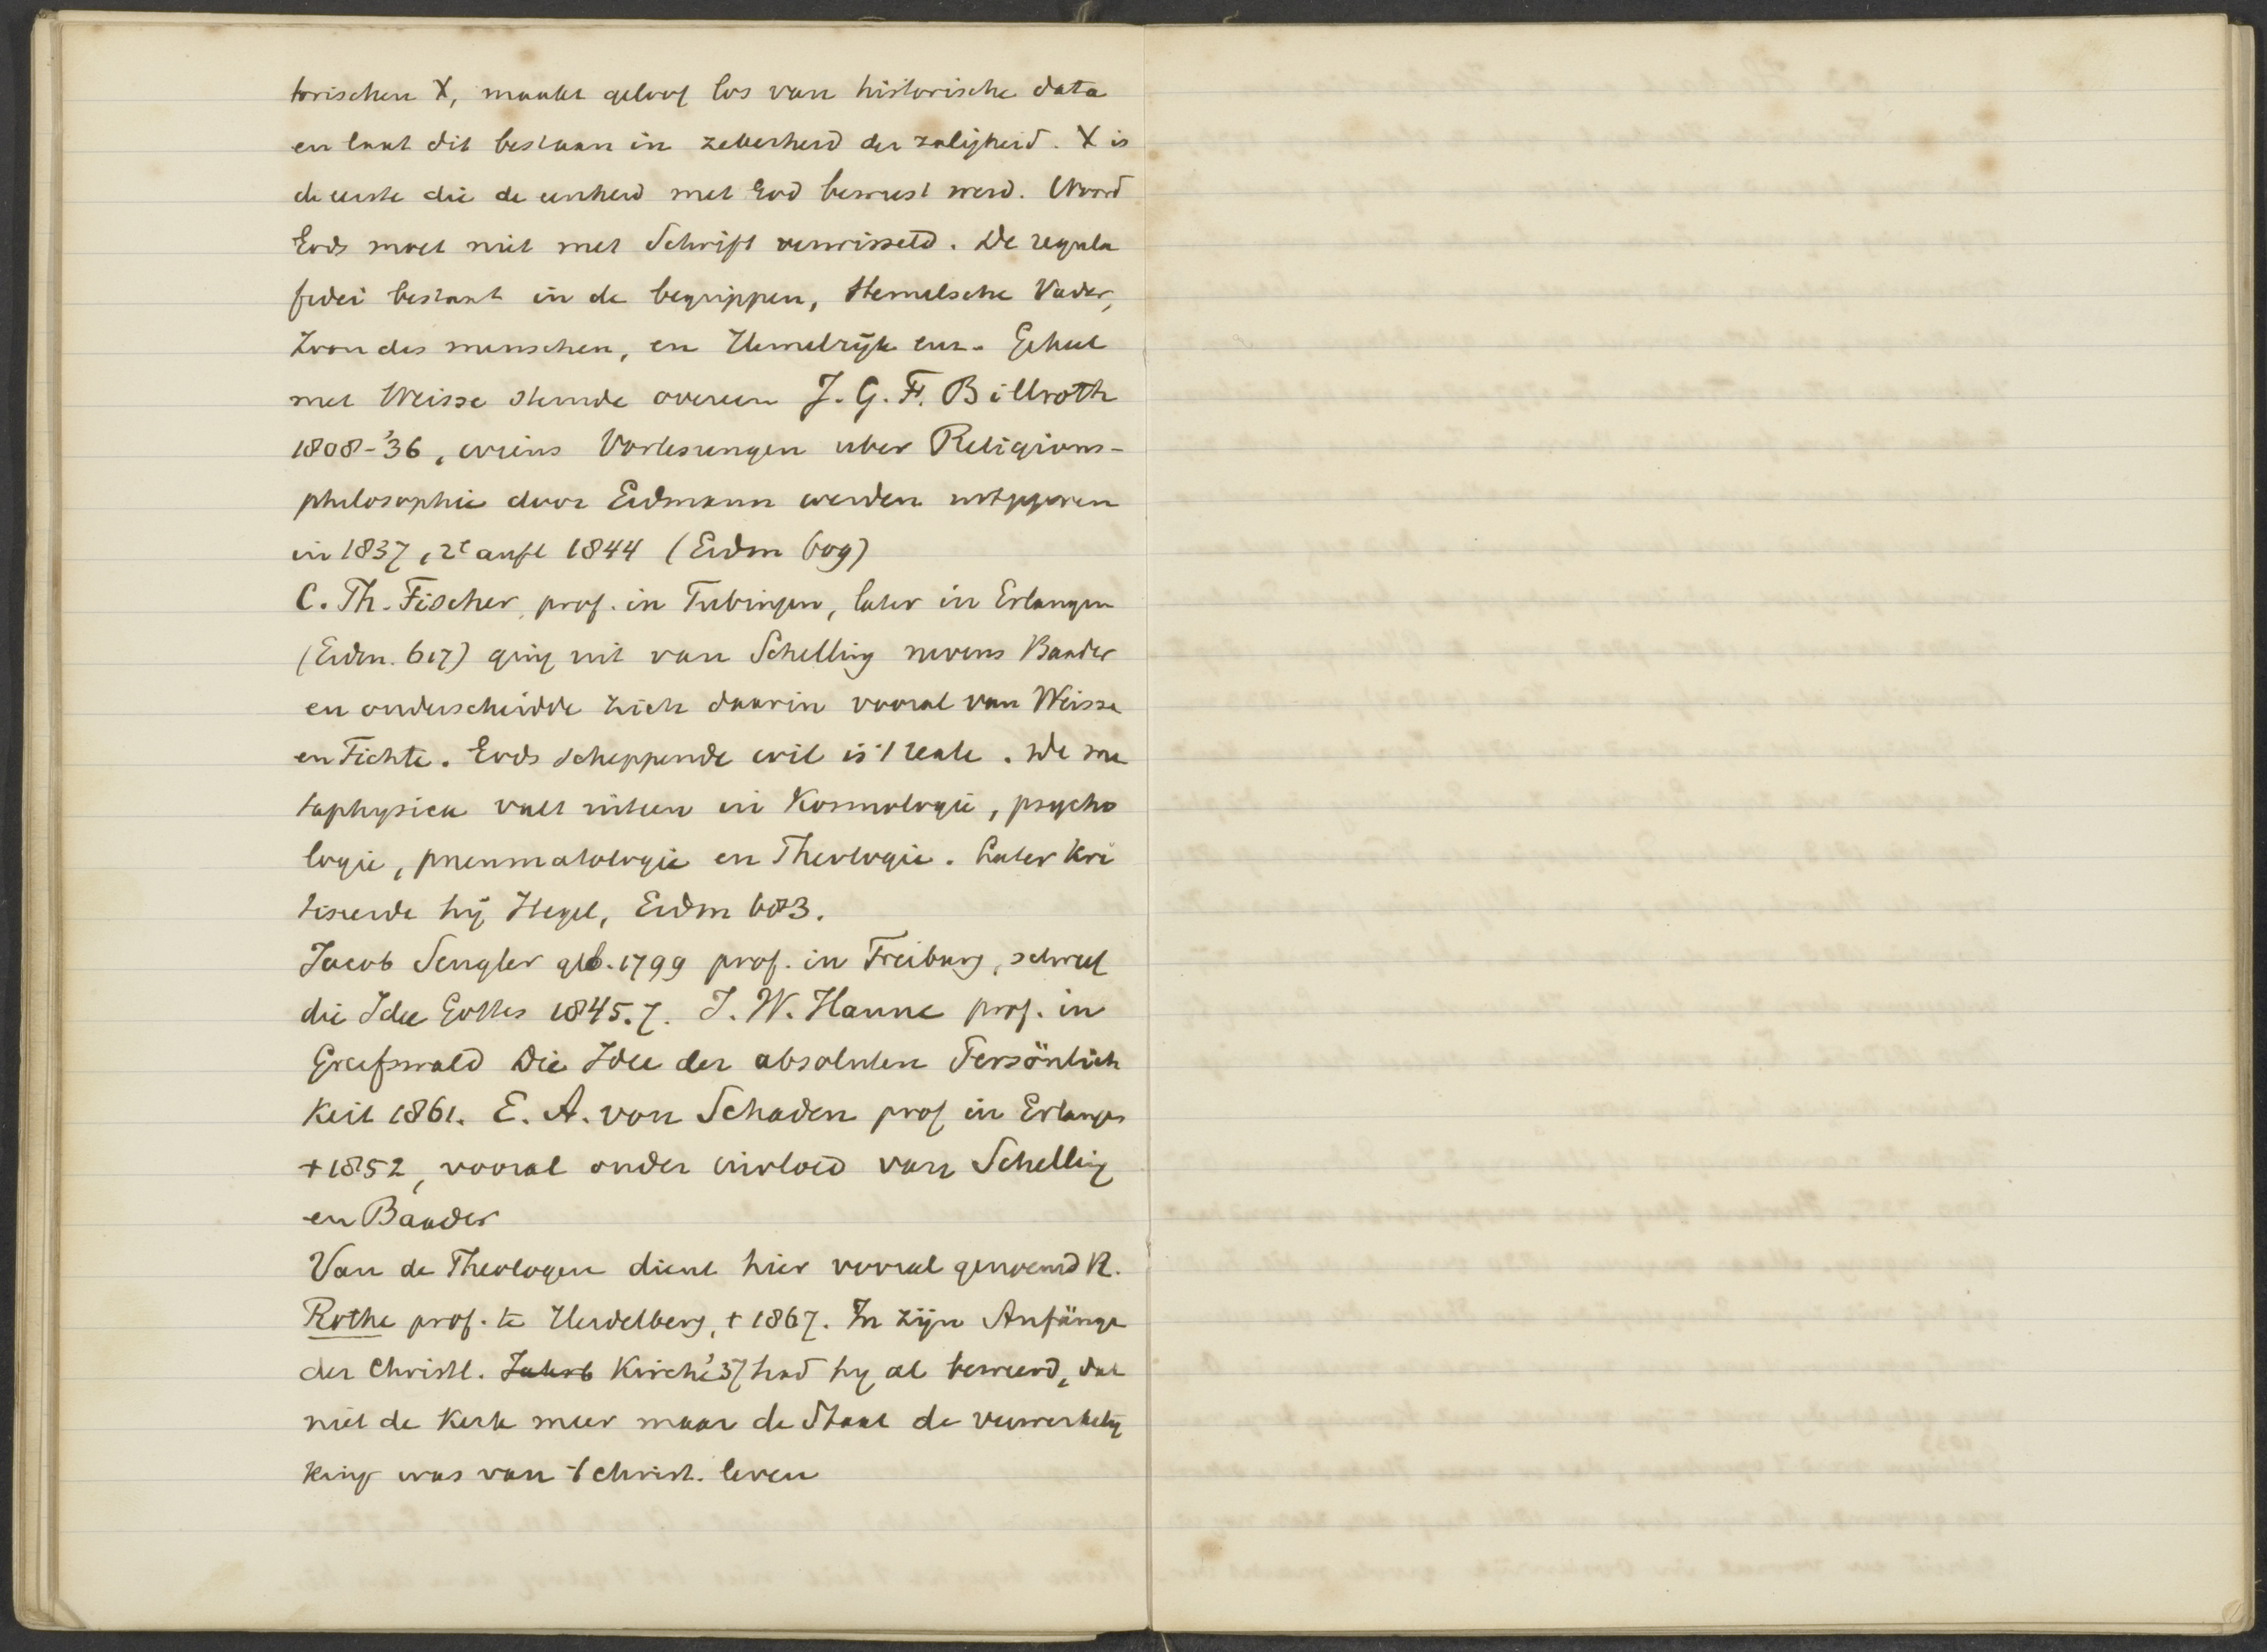 torischen X, maakt geloof los van historische data
en laat dit bestaan in zekerheid der zaligheid. X is
de eerste die de eenheid met God bewust werd. Woord
Gods moet niet met Schrift verwisseld. De regula
fidei bestaat in de begrippen, Hemelsche Vader,
Zoon des menschen, en Hemelrijk enz. Geheel
met Weisse stemde overeen J. G. F. Billroth
1808-'36, wiens Vorlesungen uber Religions-
philosophie door Erdmann werden uitgegeven
in 1837, 2e aufl 1844 (Erdm 609)
C. Th. Fischer, prof. in Tubingen, later in Erlangen
(Erdm. 617) ging uit van Schelling nevens Baader
en onderscheidde zich daarin vooral van Weisse
en Fichte. Gods scheppende wil is 't reale. De me
taphysica valt uiteen in Kosmologie, psycho
logie, pneumatologie en Theologie. Later kri
tiseerde hij Hegel, Erdm 683.
Jacob Sengler geb. 1799 prof. in Freiburg, schreef
die Idee Gottes 1845.7. J. W. Hanne prof. in
Greifswald Die Idee der absoluten Persönlich
keit 1861. E. A. von Schaden prof in Erlangen
+ 1852, vooral onder invloed van Schelling
en Baader
Van de Theologen dient hier vooral genoemd R.
Rothe prof. te Heidelberg, + 1867. In zijn Anfänge
der Christl. Jahrb Kirche '37 had hij al beweerd, dat
niet de Kerk meer maar de Staat de verwerkelij
king was van 't Christ. leven